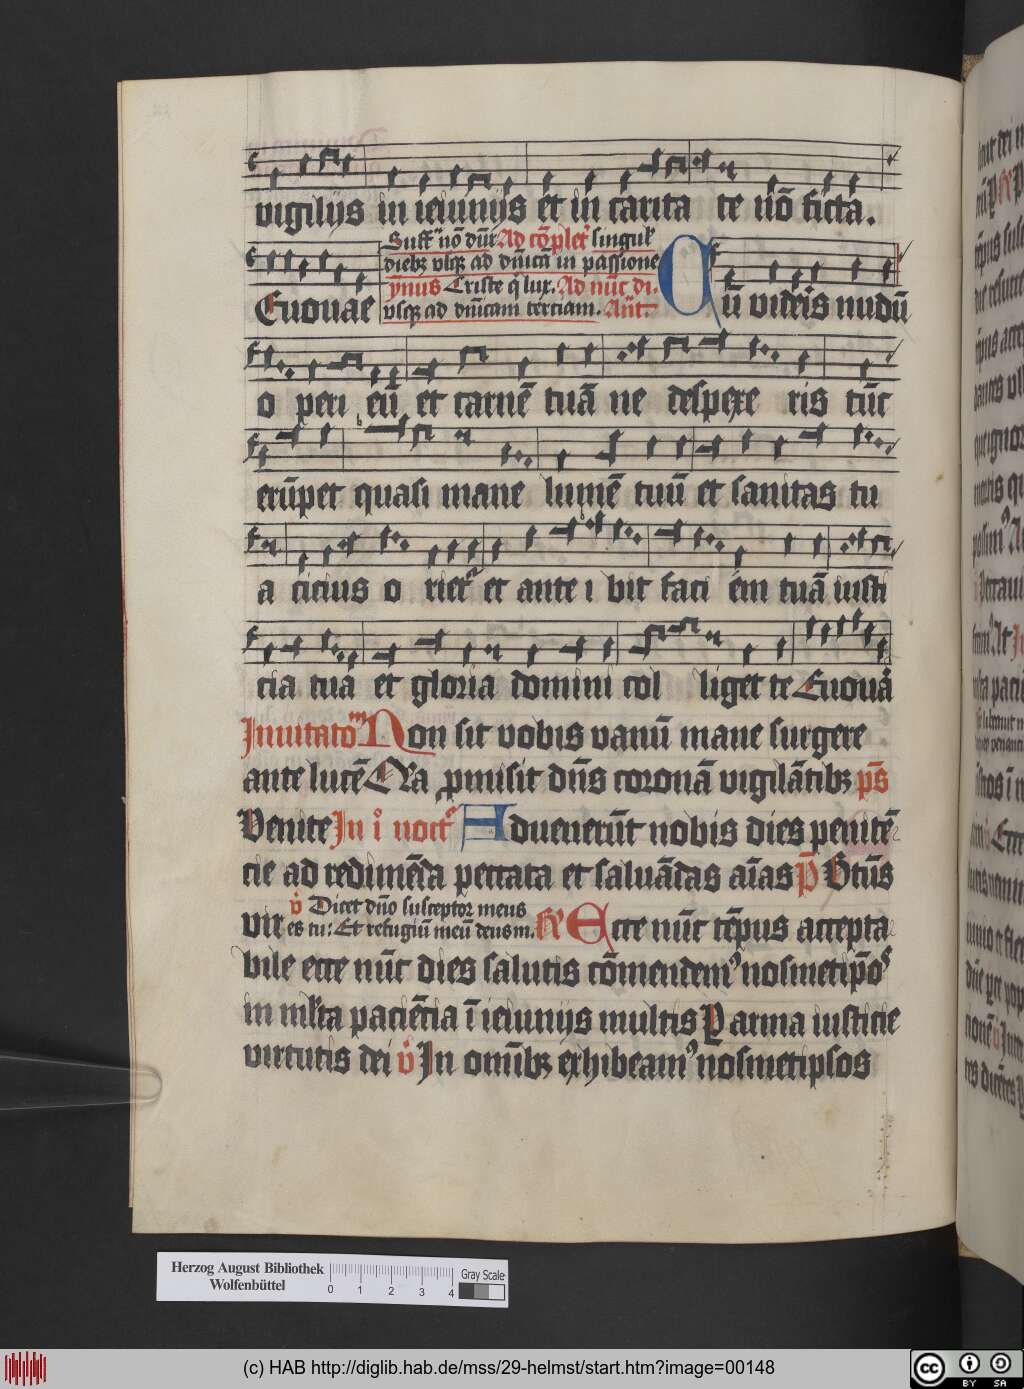 vigilijs in ieiunijs et in carita te nō ficta.
Suff̄ nō dūr Ad cōplet' singul'
dieb9 vsq3 ad dn̄icā in passione
ẏmnus Criste q̄ lux. Ad nūc di.
vsq3 ad dn̄icam terciam. An̄t.
Euouae
Cū videris nudū
o peri eū et carnē tuā ne despexe ris tūc
erūpet quasi mane lumē tuū et sanitas tu
a cicius o riet' et ante i bit faci em tuā iusti
cia tua et gloria domini col liget te Euoua
Inuitatom Non sit vobis vanū mane surgere
ante lucē Q̄a ꝓmisit dn̄s coronā vigilātib3 ps̄
Venite In i noct' Aduenerūt nobis dies penitē
cie ad redimēda peccata et saluādas aīas p̄ Btūs
vir
v̊ Dicet dn̄o susceptor meus
es tu: Et refugiū meū deus m.
R̄ Ecce nūc tēpus accepta
bile ecce nūc dies salutis cōmendem9 nosmetip̄os
in ml'ta paciēcia ī ieiunijs multis P arma iusticie
virtutis dei v̊ In omīb3 exhibeam9 nosmetipsos
Herzog August Bibliothek
Wolfenbüttel
0 1 2 3 4
Gray Scale
(c) HAB http://diglib.hab.de/mss/29-helmst/start.htm?image=00148
cc BY SA